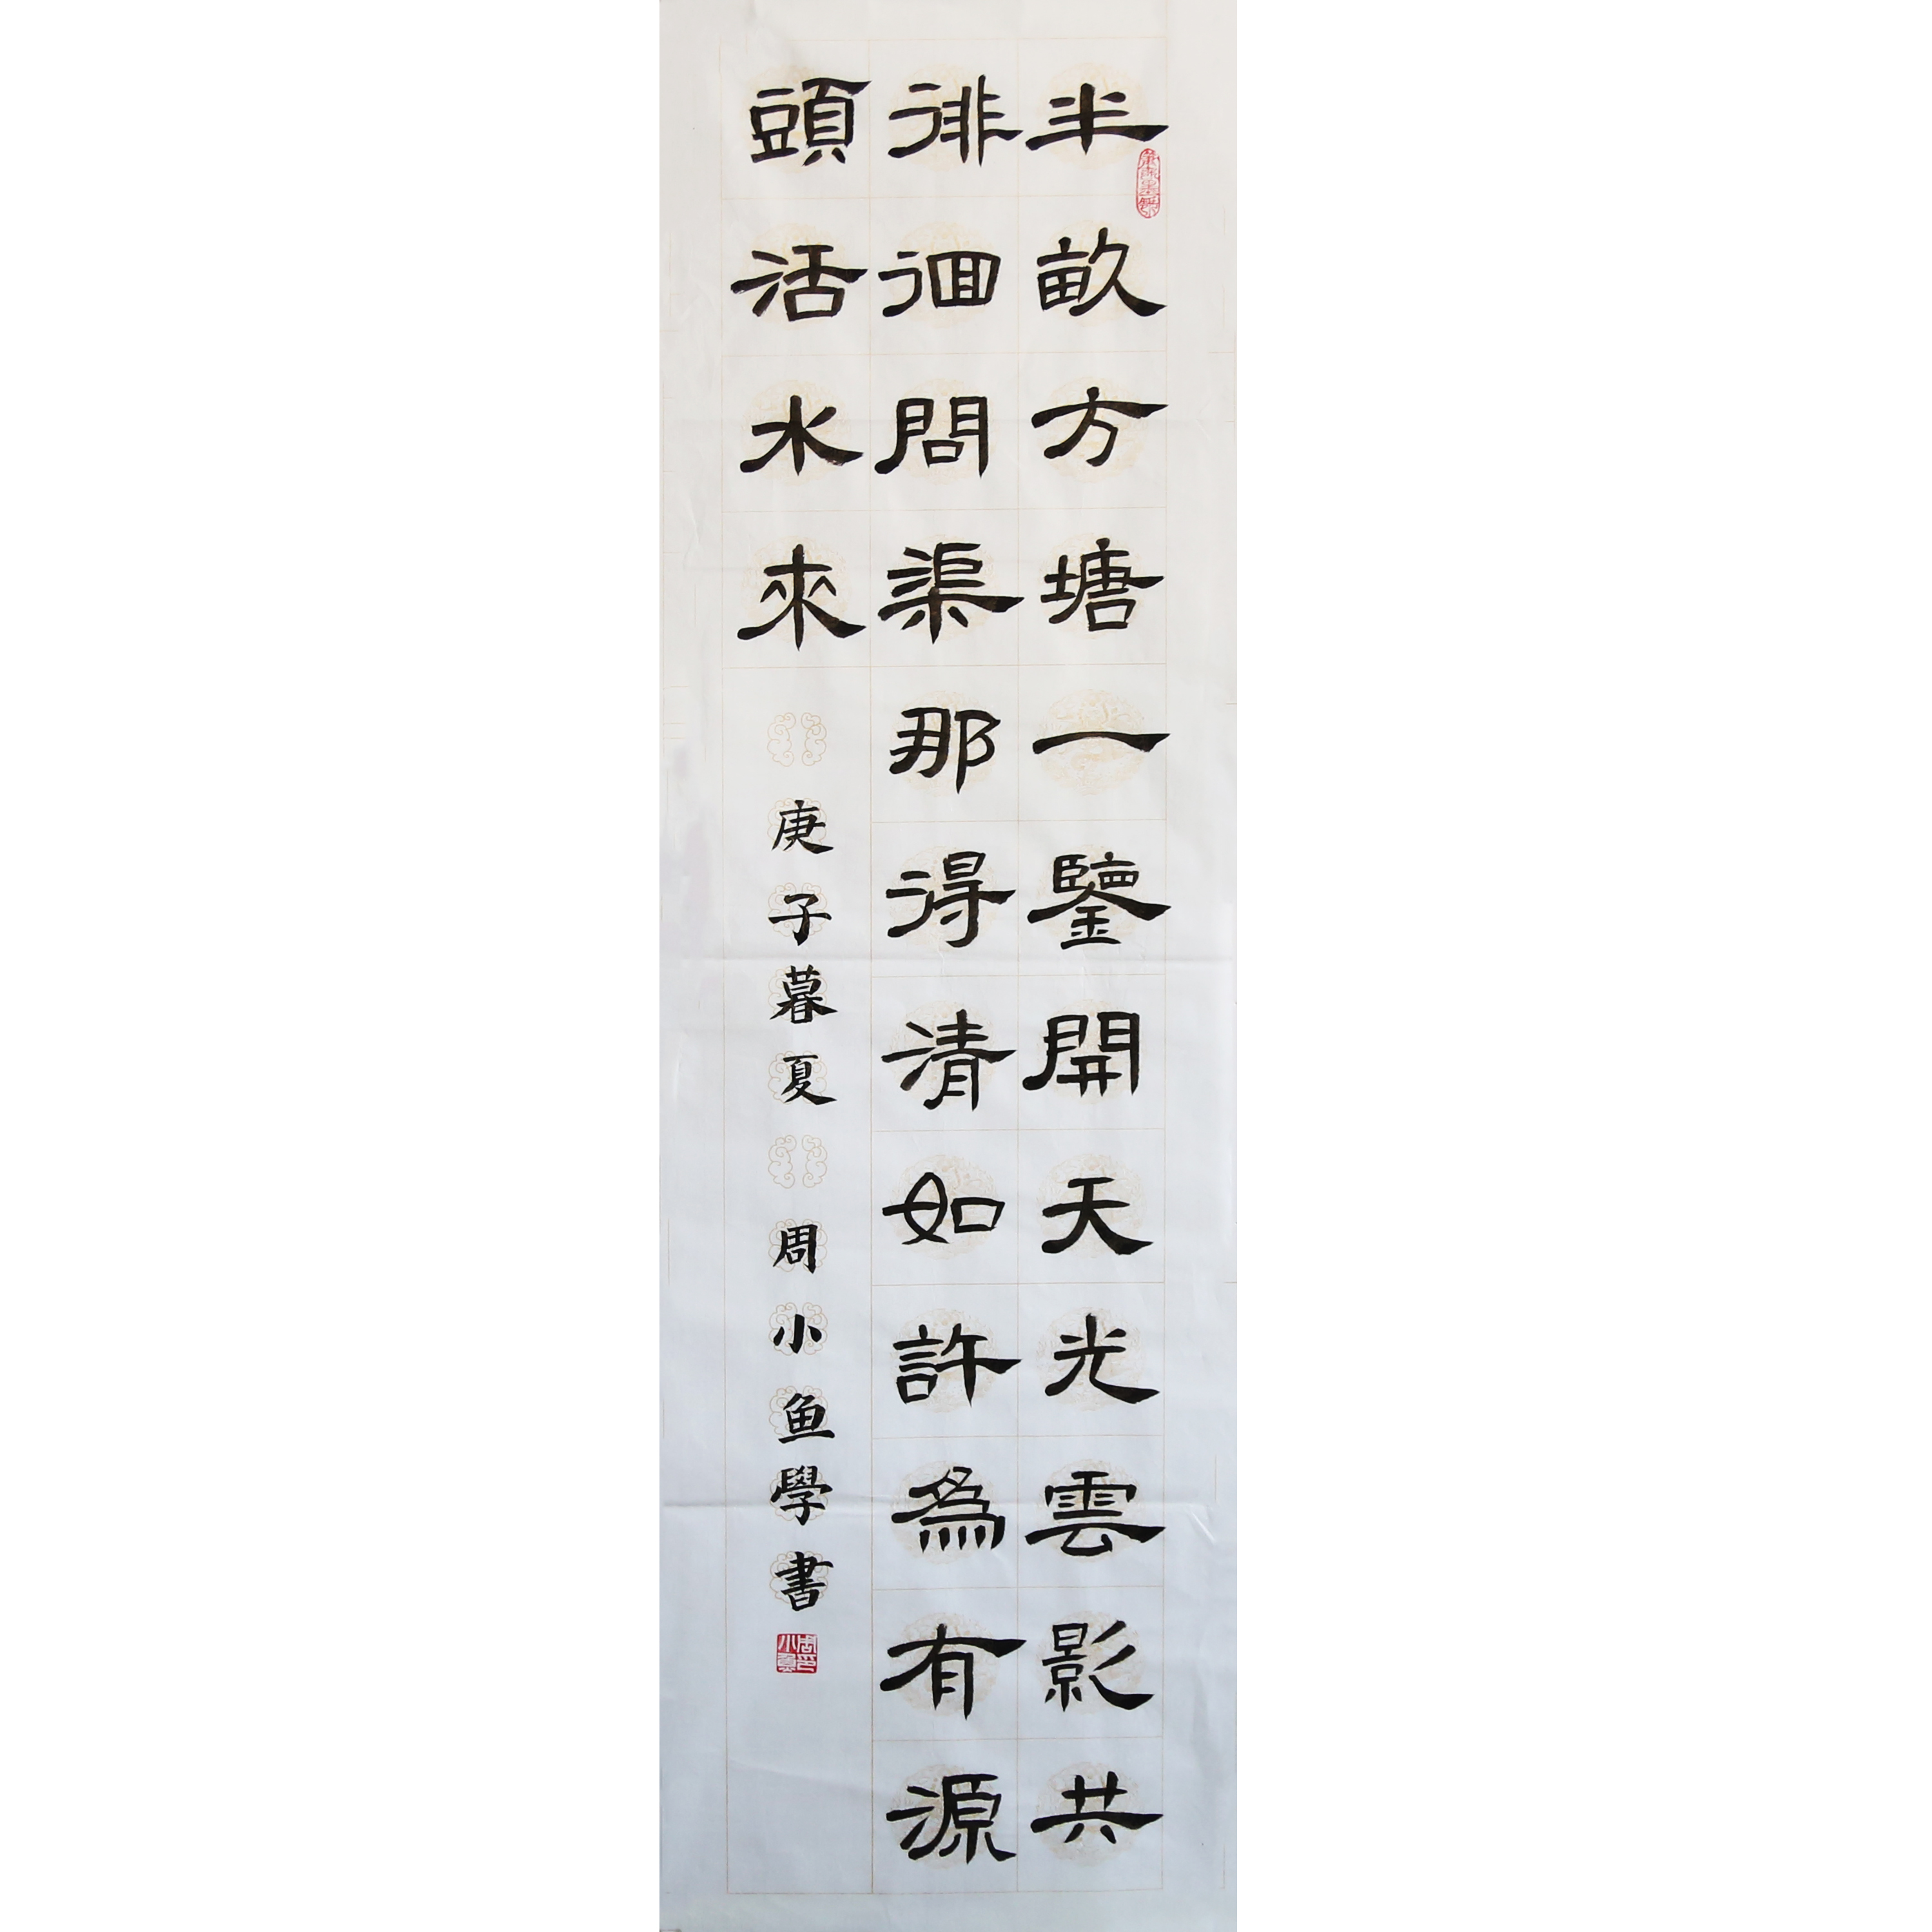 半畝方塘一鑒開天光雲影共
徘徊問渠那得清如許為有源
頭活水來
庚子暮夏 周小鱼學書
周小魚印